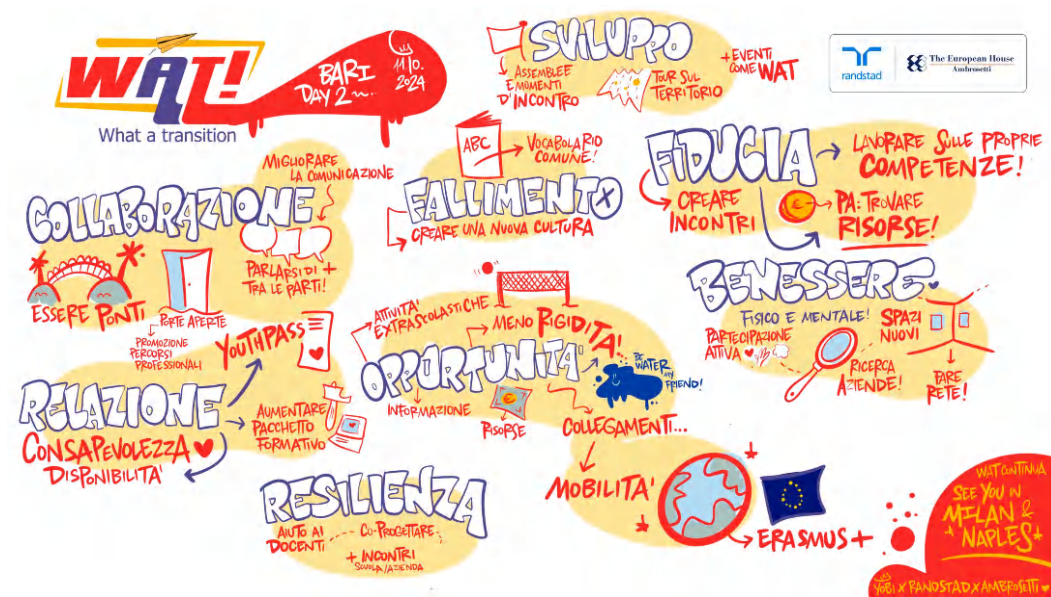 WAT!
What a transition
BARI
DAY 2
11 10.
2024
SVILUPPO
ASSEMBLEE
E MOMENTI
D'INCONTRO
TOUR SUL
TERRITORIO
+ EVENTI
COME WAT
randstad
The European House
Ambrosetti
COLLABORAZIONE
MIGLIORARE
LA COMUNICAZIONE
ESSERE PONTI
PORTE APERTE
PROMOZIONE
PERCORSI
PROFESSIONALI
PARLARSI DI +
TRA LE PARTI!
ABC
VOCABOLARIO
COMUNE!
FALLIMENTO
CREARE UNA NUOVA CULTURA
FIDUCIA
LAVORARE SULLE PROPRIE
COMPETENZE!
CREARE
INCONTRI
€
PA: TROVARE
RISORSE!
BENESSERE
FISICO E MENTALE!
PARTECIPAZIONE
ATTIVA
RICERCA
AZIENDE!
SPAZI
NUOVI
FARE
RETE!
RELAZIONE
YOUTHPASS
CONSAPEVOLEZZA
DISPONIBILITA'
AUMENTARE
PACCHETTO
FORMATIVO
OPPORTUNITA'
ATTIVITA'
EXTRASCOLASTICHE
MENO RIGIDITA'
BE
WATER
MY
FRIEND!
INFORMAZIONE
€
RISORSE
COLLEGAMENTI...
MOBILITA'
ERASMUS +
RESILIENZA
AIUTO AI
DOCENTI
CO-PROGETTARE
+ INCONTRI
SCUOLA/AZIENDA
WAT CONTINUA
SEE YOU IN
MILAN &
NAPLES
YOBI X RANDSTAD X AMBROSETTI